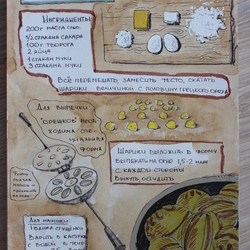 Ингредиенты:
200г масла слив.
1/2 стакана сахара
100г творога
2 яйца
1 стакан муки
3 стакана муки
Всё перемешать, замесить тесто, скатать
шарики величиной с половину грецкого ореха
Для выпечки
"орешков" необ-
ходима спе-
циальная
форма
Шарики выложить в форму
выпекать на огне 1,5-2 мин
с каждой стороны
Вынуть, остудить
Для начинки:
1 банка сгущёнки
Варить в кастрюле
с водой